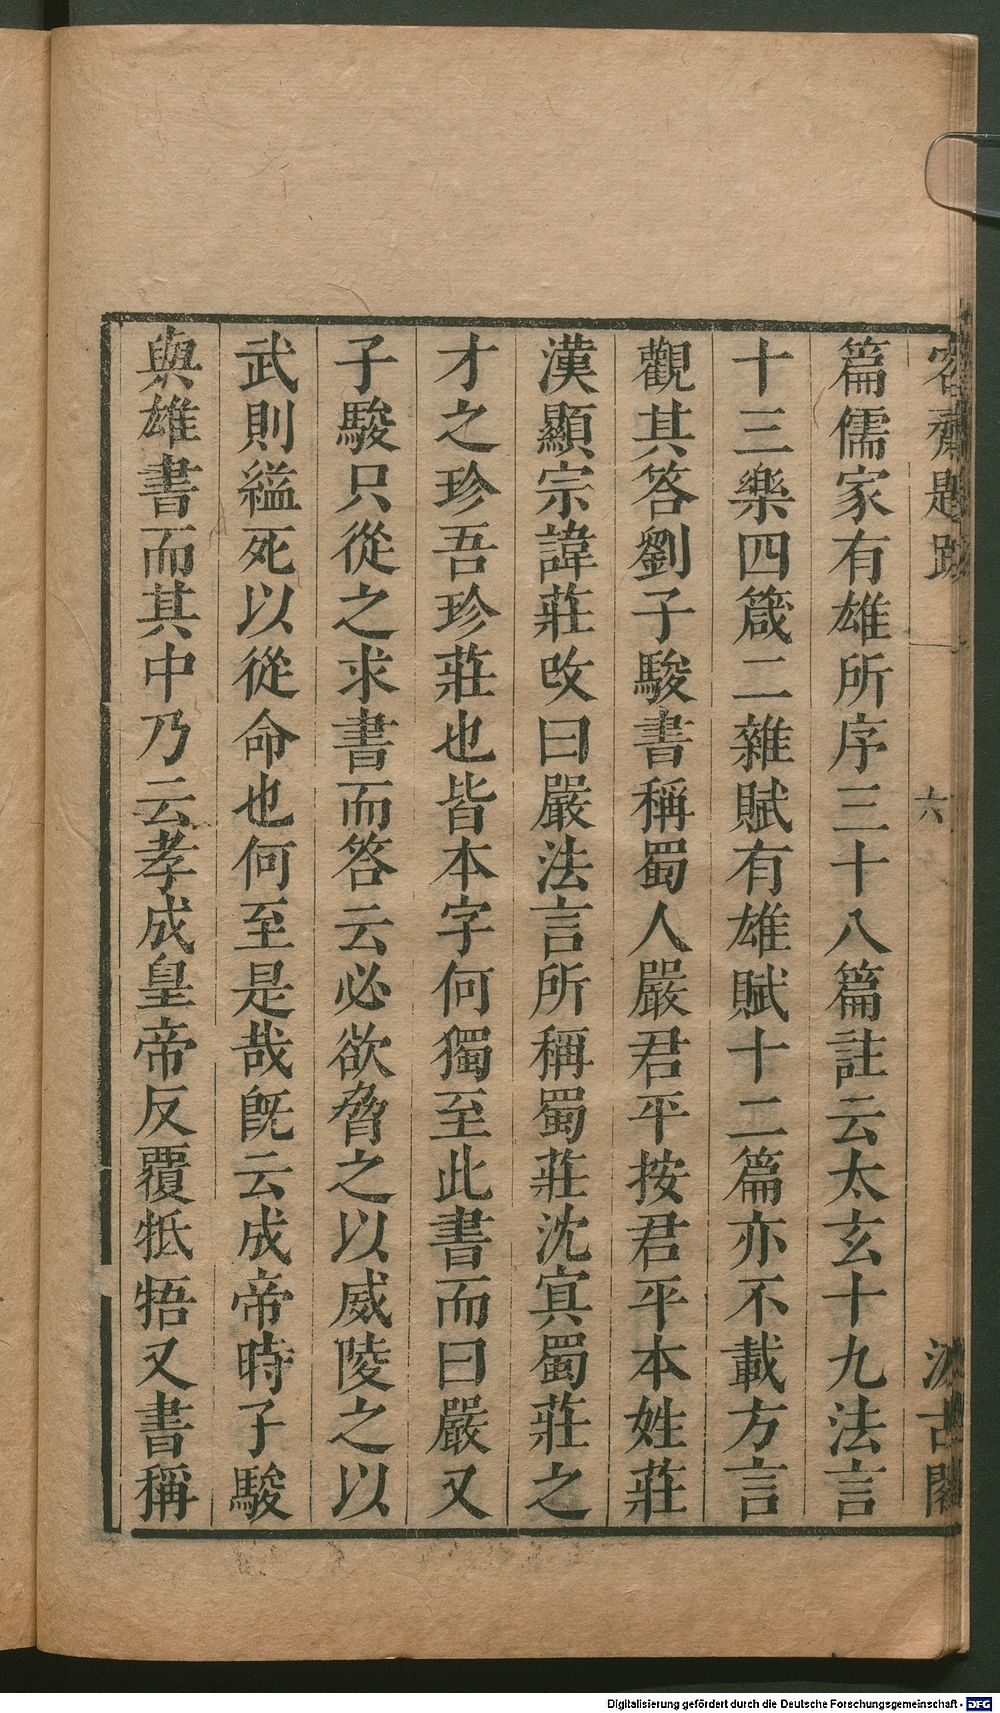 容齋題跋 一 六 汲古閣
篇儒家有雄所序三十八篇註云太玄十九法言
十三樂四箴二雜賦有雄賦十二篇亦不載方言
觀其答劉子駿書稱蜀人嚴君平按君平本姓莊
漢顯宗諱莊改曰嚴法言所稱蜀莊沈㝠蜀莊之
才之珍吾珍莊也皆本字何獨至此書而曰嚴又
子駿只從之求書而答云必欲脅之以威陵之以
武則縊死以從命也何至是哉旣云成帝時子駿
與雄書而其中乃云孝成皇帝反覆牴牾又書稱
Digitalisierung gefördert durch die Deutsche Forschungsgemeinschaft - DFG